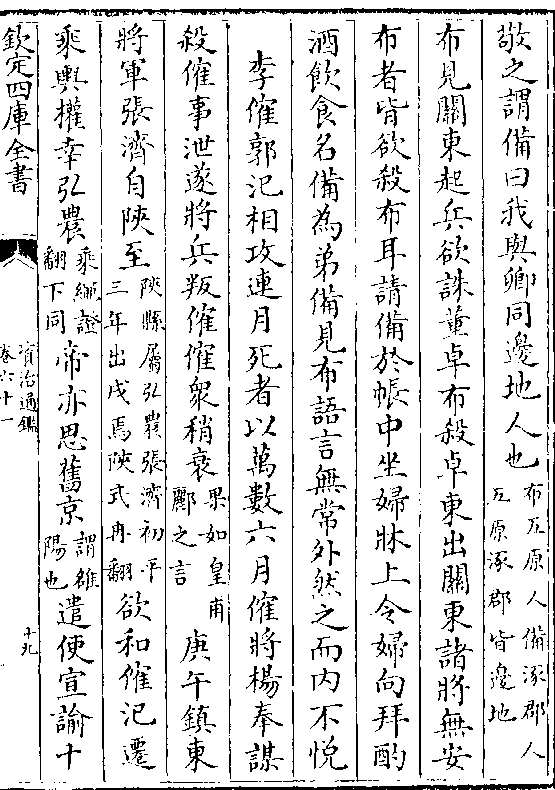 敬之謂備曰我與卿同邊地人也布五原人備涿郡人五原涿郡皆邊地
布見關東起兵欲誅董卓布殺卓東出關東諸將無安
布者皆欲殺布耳請備於帳中坐婦牀上令婦向拜酌
酒飲食名備為弟備見布語言無常外然之而内不悦
李傕郭汜相攻連月死者以萬數六月傕將楊奉謀
殺傕事泄遂將兵叛傕傕衆稍衰果如皇甫酈之言庚午鎮東
將軍張濟自陜至陜縣屬弘農張濟初平三年出戍焉陜式冉翻欲和傕汜遷
乘輿權幸弘農乘繩證翻下同帝亦思舊京謂雒陽也遣使宣諭十
欽定四庫全書
資治通鑑
卷六十一
十九